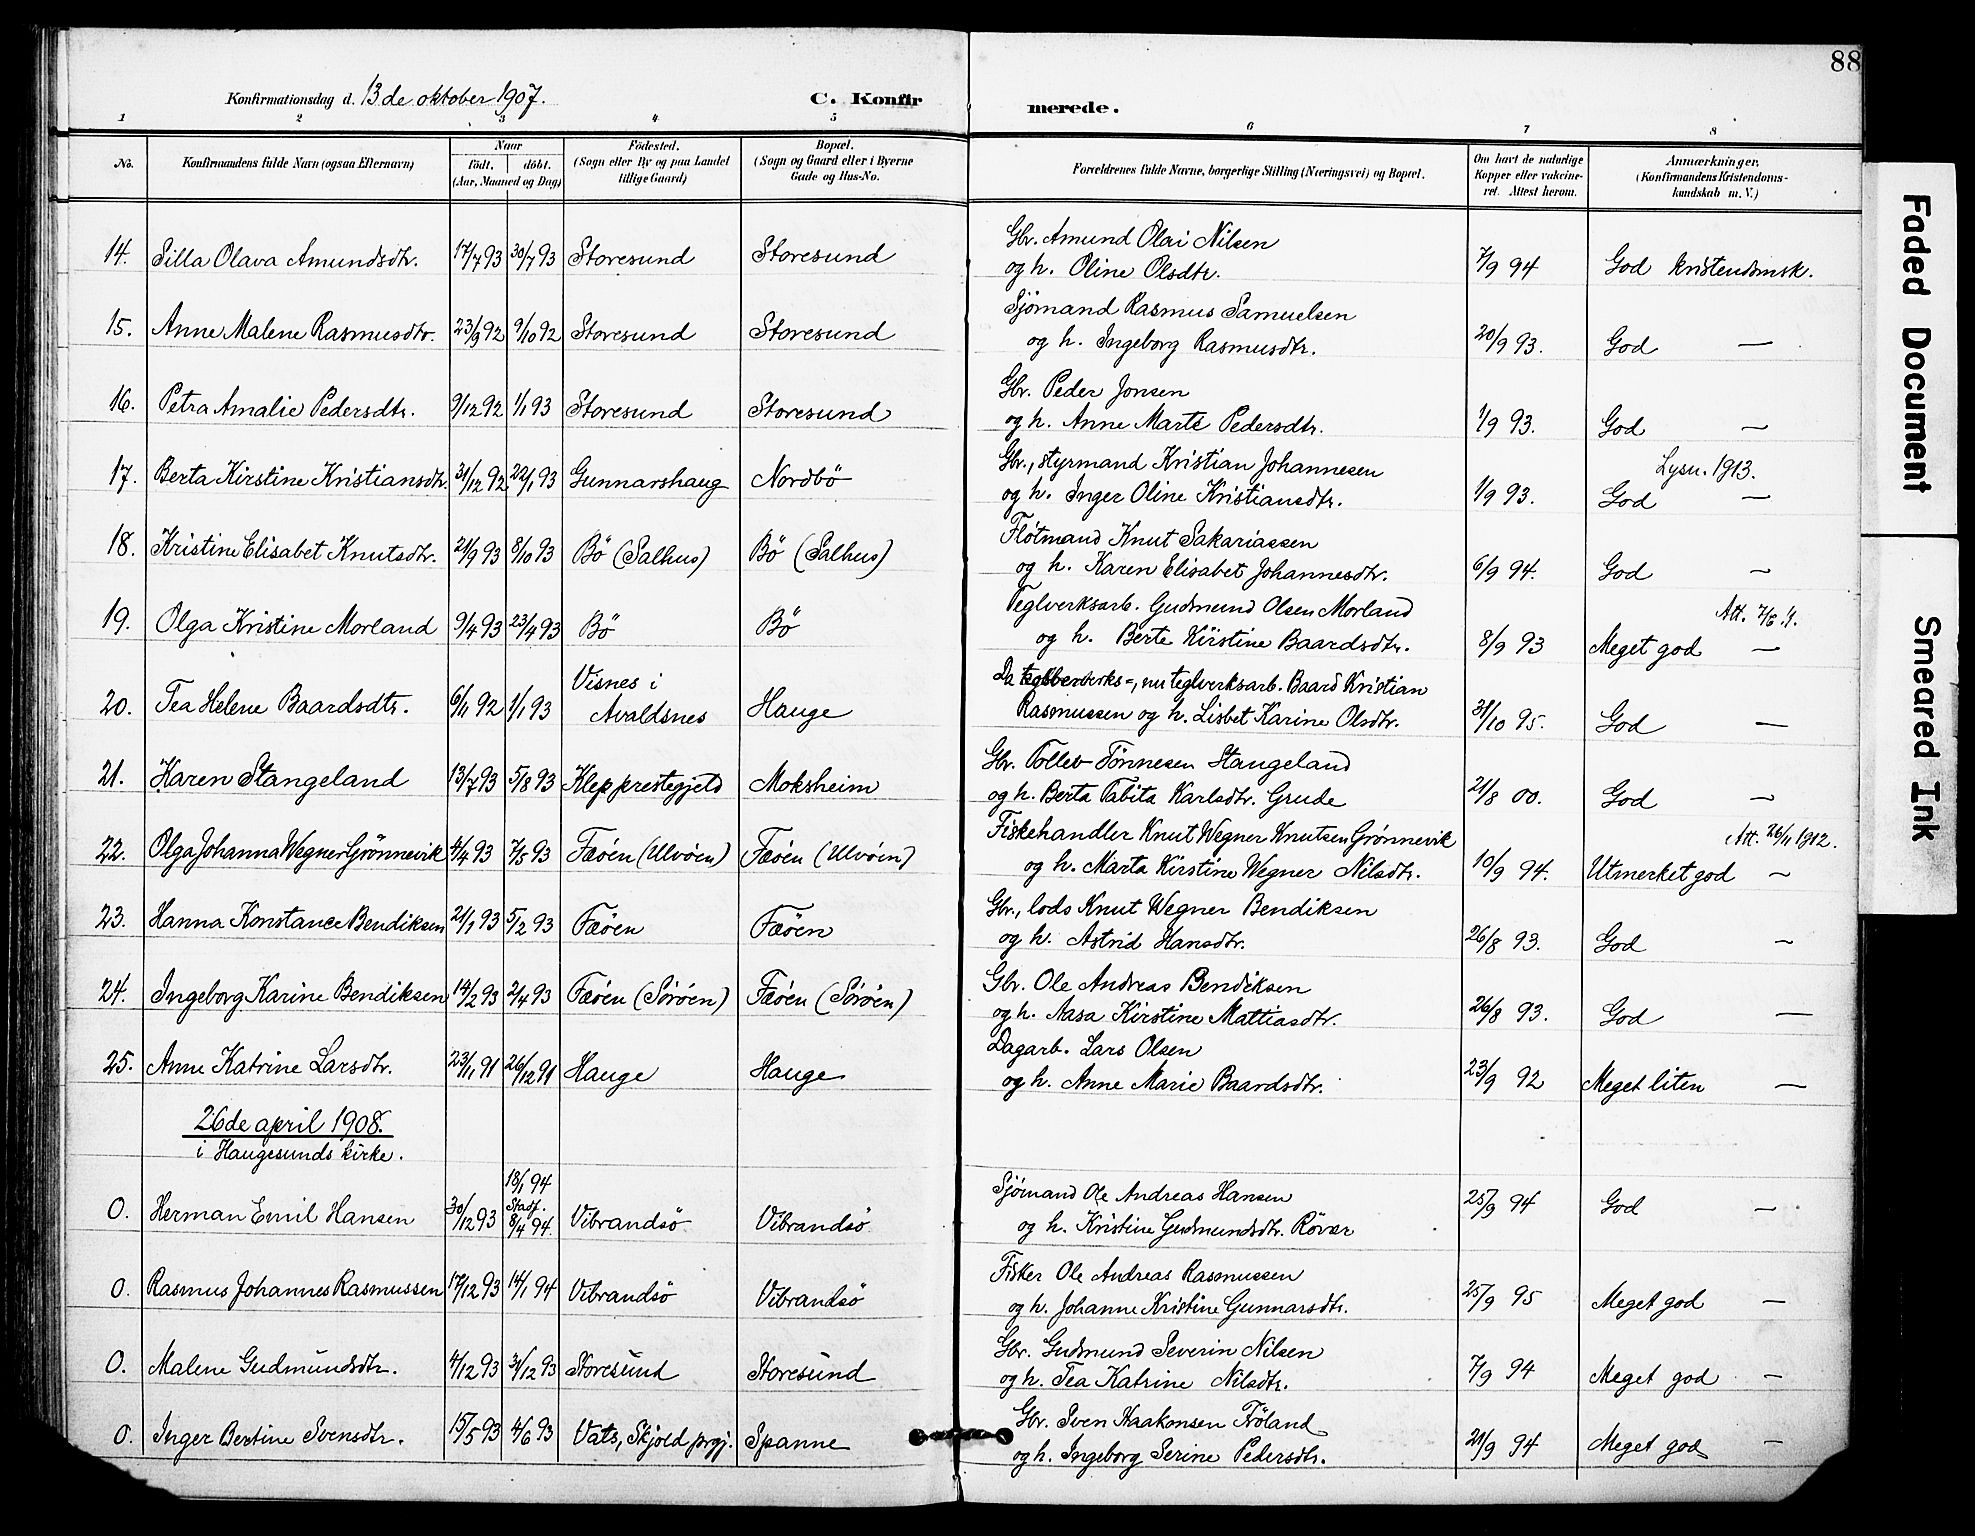 88
Konfirmationsdag d. 13de oktober 1907.
C. Konfirmerede.
1 2 3 4 5 6 7 8
No.
Konfirmandens fulde Navn (ogsaa Efternavn)
Naar
født. døbt.
(Aar, Maaned og Dag)
Fødested.
(Sogn eller By og paa Landet
tillige Gaard)
Bopæl.
(Sogn og Gaard eller i Byerne
Gade og Hus-No.
Forældrenes fulde Navne, borgerlige Stilling (Næringsvei) og Bopæl.
Om havt de naturlige
Kopper eller vakcine-
ret. Attest herom.
Anmærkninger,
(Konfirmandens Kristendoms-
kundskab m. V.)
14. Silla Olava Amundsdtr. 17/7 93 30/7 93 Storesund Storesund Gbr. Amund Olai Nilsen
og h. Oline Olsdtr. 7/9 94 God kristendomsk.
15. Anne Malene Rasmusdtr. 23/9 92 9/10 92 Storesund Storesund Sjömand Rasmus Samuelsen
og h. Ingeborg Rasmusdtr. 20/9 93. God —
16. Petra Amalie Pedersdtr. 9/12 92 1/1 93 Storesund Storesund Gbr. Peder Jonsen
og h. Anne Marte Pedersdtr. 1/9 93. God —
17. Berta Kirstine Kristiansdtr. 31/12 92 22/1 93 Gunnarshaug Nordbö Gbr., styrmand Kristian Johannesen Lysn. 1913.
og h. Inger Oline Kristiansdtr. 1/9 93. God —
18. Kristine Elisabet Knutsdtr. 21/9 93 8/10 93 Bö (Salhus) Bö (Salhus) Fløtmand Knut Sakariassen
og h. Karen Elisabet Johannesdtr. 6/9 94. God —
19. Olga Kristine Morland 9/4 93 23/4 93 Bö Bö Teglverksarb. Gudmund Olsen Morland Att.
og h. Berte Kirstine Baardsdtr. 8/9 93 Meget god —
20. Tea Helene Baardsdtr. 6/11 92 1/1 93 Visnes i
Avaldsnes Hauge Da kobberverks=, nu teglverksarb. Baard Kristian
Rasmussen og h. Lisbet Karine Olsdtr. 31/10 95. God —
21. Karen Stangeland 13/7 93 5/8 93 Klepp prestegjeld Moksheim Gbr. Tollev Tönnesen Stangeland
og h. Berta Tabita Karlsdtr. Grude 21/8 00. God —
22. Olga Johanna Wegner Grönnevik 4/4 93 7/5 93 Fæöen (Ulvöen) Fæöen (Ulvöen) Fiskehandler Knut Wegner Knutsen Grønnevik Att. 26/11 1912.
og h. Marta Kirstine Wegner Nilsdtr. 10/9 94. Utmerket god —
23. Hanna Konstance Bendiksen 21/1 93 5/2 93 Fæöen Fæöen Gbr., lods Knut Wegner Bendiksen
og h. Astrid Hansdtr. 26/8 93. God —
24. Ingeborg Karine Bendiksen 14/2 93 2/4 93 Fæöen (Söröen) Fæöen (Söröen) Gbr. Ole Andreas Bendiksen
og h. Aasa Kirstine Mattiasdtr. 26/8 93. God —
25. Anne Katrine Larsdtr. 23/11 91 26/12 91 Hauge Hauge Dagarb. Lars Olsen
og h. Anne Marie Baardsdtr. 23/9 92 Meget liten —
26de april 1908.
i Haugesunds kirke.
0. Herman Emil Hansen 30/12 93 18/1 94
Stadf.
8/4 94. Vibrandsö Vibrandsö Sjømand Ole Andreas Hansen
og h. Kristine Gudmundsdtr. Rövær 25/9 94 God —
0. Rasmus Johannes Rasmussen 17/12 93 14/1 94 Vibrandsö Vibrandsö Fisker Ole Andreas Rasmussen
og h. Johanne Kristine Gunnarsdtr. 25/9 95 Meget god —
0. Malene Gudmundsdtr. 4/12 93 31/12 93 Storesund Storesund Gbr. Gudmund Severin Nilsen
og h. Tea Katrine Nilsdtr. 7/9 94 Meget god —
0. Inger Bertine Svensdtr. 15/5 93 4/6 93 Vats, Skjold prgj. Spanne Gbr. Sven Haakonsen Tröland
og h. Ingeborg Serine Pedersdtr. 21/9 94 Meget god —
Faded Document
Smeared Ink